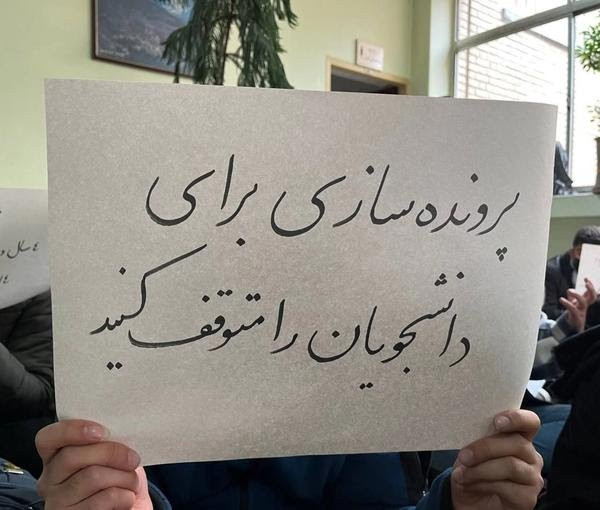 پرونده‌سازی برای
دانشجویان را متوقف کنید
٤ سال و